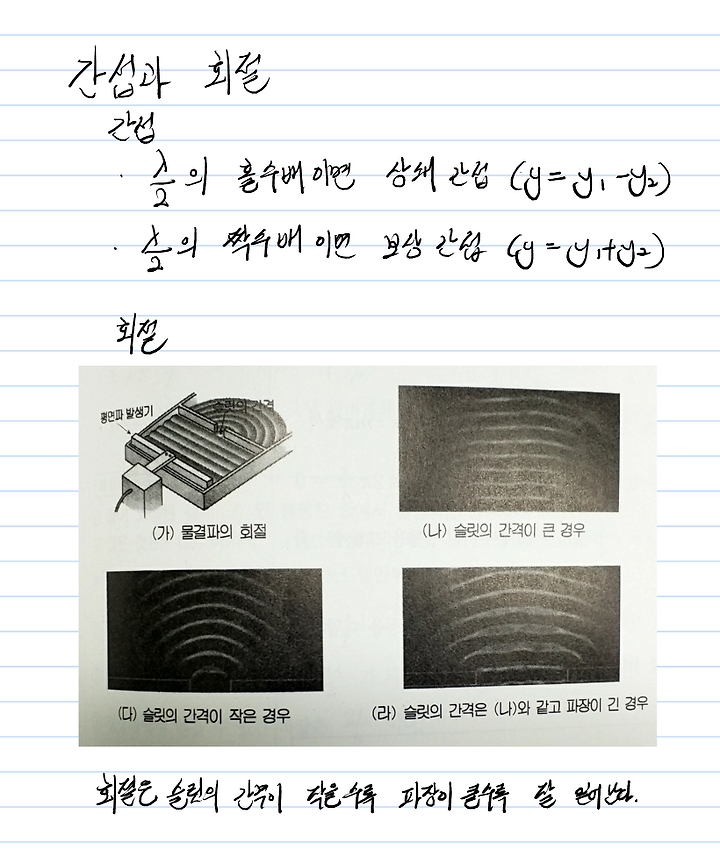 간섭과 회절
간섭
· λ/2의 홀수배이면 상쇄 간섭 (y = y₁ - y₂)
· λ/2의 짝수배이면 보상 간섭 (y = y₁ + y₂)
회절
평면파 발생기
슬릿의 간격
(가) 물결파의 회절
(나) 슬릿의 간격이 큰 경우
(다) 슬릿의 간격이 작은 경우
(라) 슬릿의 간격은 (나)와 같고 파장이 긴 경우
회절은 슬릿의 간격이 작을수록 파장이 클수록 잘 일어난다.